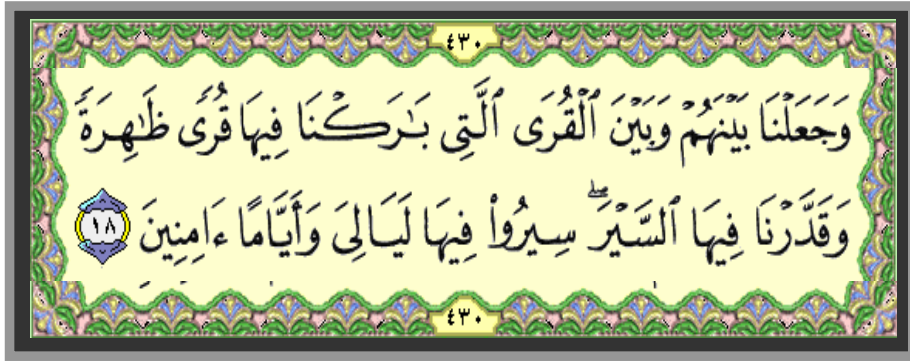 ٤٣٠
وَجَعَلْنَا بَيْنَهُمْ وَبَيْنَ ٱلْقُرَى ٱلَّتِى بَـٰرَكْنَا فِيهَا قُرًى ظَـٰهِرَةً
وَقَدَّرْنَا فِيهَا ٱلسَّيْرَ ۖ سِيرُوا۟ فِيهَا لَيَالِىَ وَأَيَّامًا ءَامِنِينَ ١٨
٤٣٠